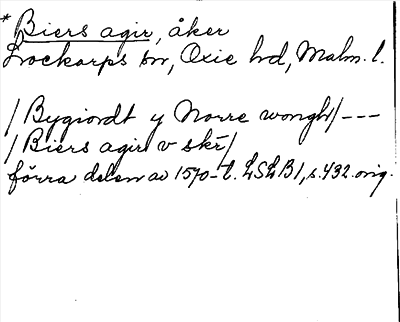 * Biers agir, åker
Lockarps sn, Oxie hd, Malm. l.
/Bygiordt y Norre wongh/---
/Biers agir v skr/
förra delen av 1570-t. LSLB1, s. 432. orig.